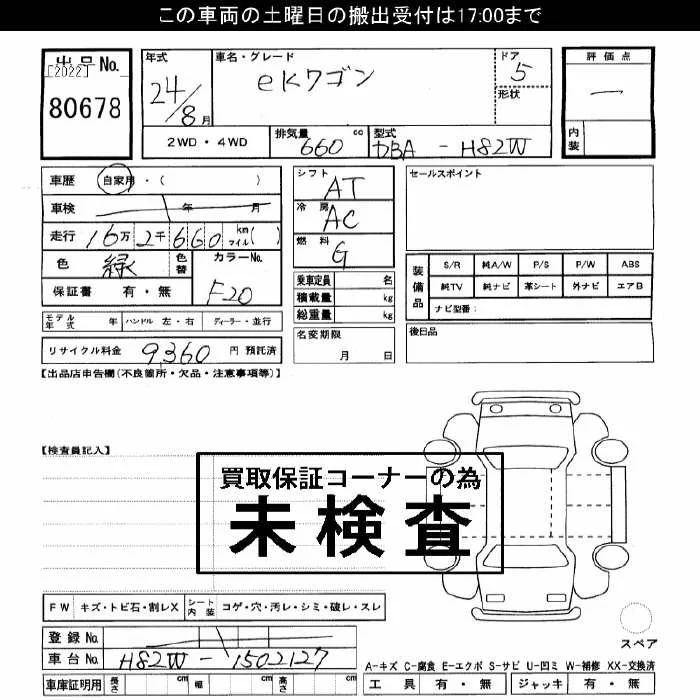 この車両の土曜日の搬出受付は17:00まで
出品No.
[2022]
80678
年式
24/8月
車名・グレード
eKワゴン
ドア
5
形状
評価点
一
内装
2WD・4WD
排気量
660 cc
型式
DBA - H82W
車歴 自家用・( )
車検 年 月
走行 16万2千660 km マイル( )
色 緑 色替
カラーNo.
F20
保証書 有・無
モデル年式 年 ハンドル 左・右 ディーラー・並行
リサイクル料金 9,360 円 預託済
シフト
AT
冷房
AC
燃料
G
乗車定員 名
積載量 kg
総重量 kg
名変期限
月 日
セールスポイント
装備品
S/R 純A/W P/S P/W ABS
純TV 純ナビ 革シート 外ナビ エアB
ナビ型番:
後日品
【出品店申告欄(不良箇所・欠品・注意事項等)】
【検査員記入】
買取保証コーナーの為
未検査
FW キズ・トビ石・割レX シート内装 コゲ・穴・汚レ・シミ・破レ・スレ
登録No.
車台No. H82W - 1502127
車庫証明用 長さ cm 幅 cm 高さ cm
スペア
A-キズ C-腐食 E-エクボ S-サビ U-凹ミ W-補修 XX-交換済
工具 有・無 ジャッキ 有・無